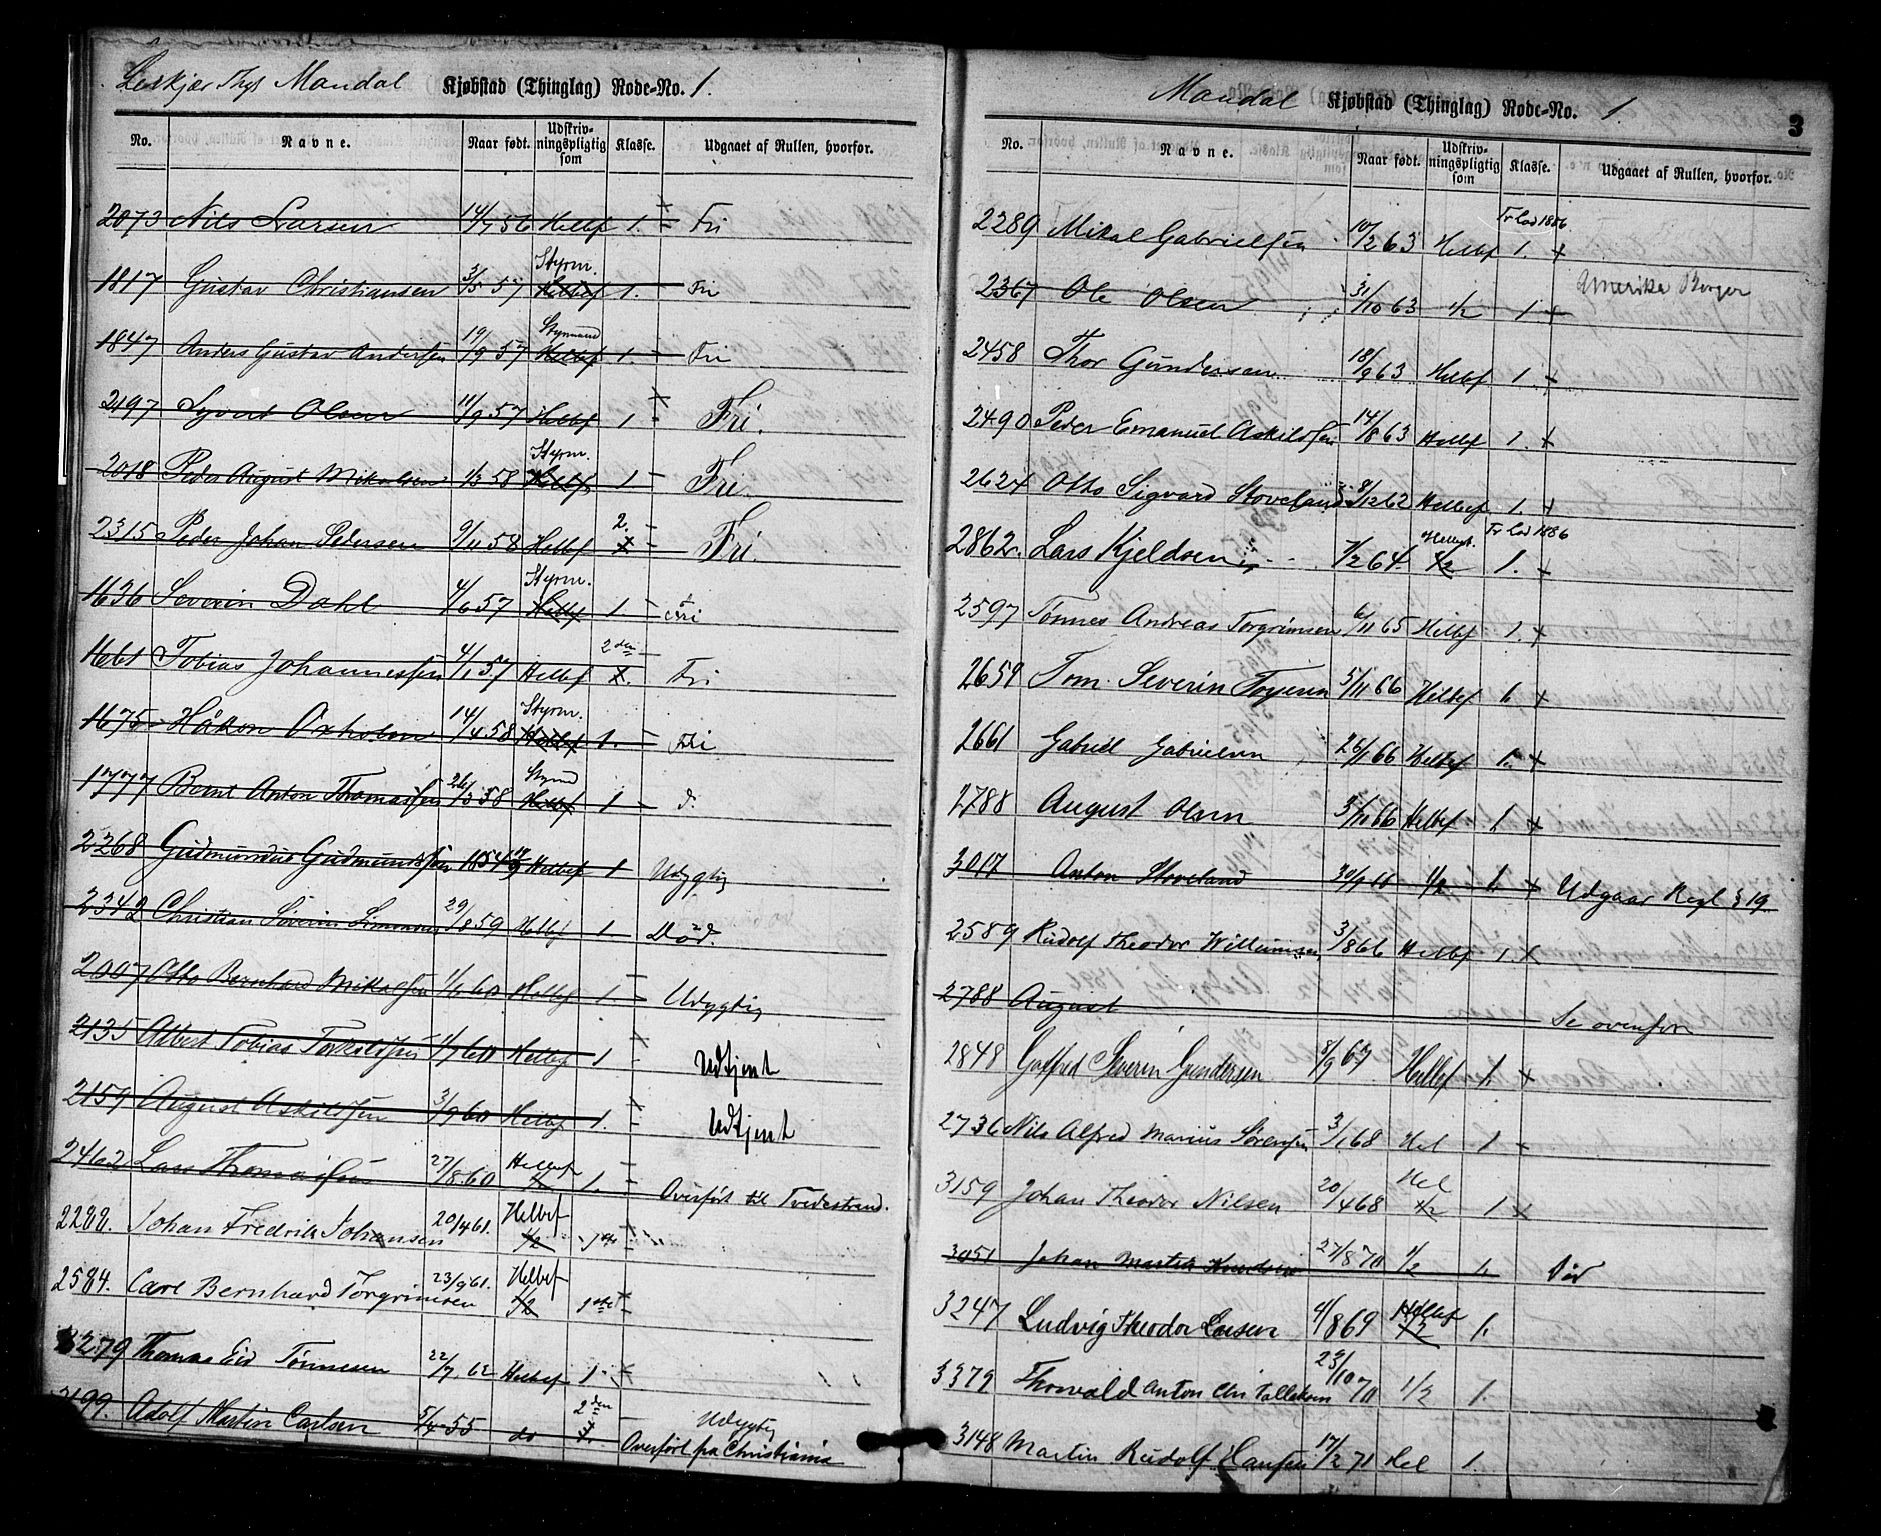 Mandal Kjøbstad (Thinglag) Rode-No. 1.
No. Navne. Naar født. Udskrivningspligtig som Klasse. Udgaaet af Rullen, hvorfor.
2073 Nils Larsen 14/7 56 Helbef 1. Fri
1817 Gustav Christiansen 3/5 57 Styrm. Helbef 1. Fri
1847 Anders Gustav Andersen 19/9 57 Styrmand Helbef 1. Fri
2197 Syvert Olsen 11/9 57 Helbef 1 Fri.
2018 Peder August Mikalsen 1/3 58 Styrm. Helbef 1 Fri.
2315 Peder Johan Pedersen 9/11 58 Helbef 2. Fri.
1636 Severin Dahl 4/6 57 Styrm. Helbef 1 Fri
1661 Tobias Johannessen 4/1 57 Helbef 2den Fri
1675 Håkon Oxholm 14/4 58 Styrm. Helbef 1. Fri
1777 Bernt Anton Thomassen 26/3 58 Styrmd Helbef 1 d.
2268 Gudmundus Gudmundsen 1854 Helbef 1 Udygtig
2342 Christian Severin Simonsen 29/8 59 Helbf 1 Død.
2007 Otto Bernhard Mikalsen 1/6 60 Helbef 1. Udygtig
2135 Albert Tobias Torkildsen 1/7 60 Helbef 1. Udtjent
2159 August Askildsen 3/9 60 Helbef 1. Udtjent
2462 Lars Thomassen 27/8 60 Helbef 1. Overført til Tvedestrand.
2282. Johan Fredrik Johansen 20/4 61. Helbef 1/2 1ste
2584. Carl Bernhard Torgrimsen 23/9 61. Helbef 1/2 1ste
3279 Thomas Eid Tønnesen 22/7. 62 Helbef 1.
2199. Adolf Martin Carlsen 5/4 55 do 2den Udygtig
Overført fra Christiania
Mandal Kjøbstad (Thinglag) Rode-No. 1.
3
No. Navne. Naar født. Udskrivningspligtig som Klasse. Udgaaet af Rullen, hvorfor.
2289 Mikal Gabrielsen 10/2 63 Helbf 1. +
2367 Ole Olsen 3/10 63 1/2 1 + Amerika Borger
2458 Thor Gundersen 18/9 63 Helbf 1. +
2490 Peder Emanuel Askildsen 14/8 63 Helbf 1. +
2624 Otto Sigvard Stoveland 8/12 62 Helbef 1. +
2862 Lars Kjeldsen 7/2 64 Helbef. 1/2 1. +
2597 Tønnes Andreas Torgrimsen 6/11 65 Helbf 1. +
2659 Tom. Severin 5/11 66 Helbef 1. +
2661 Gabriel Gabrielsen 26/1 66 Helbef 1. +
2788 August Olsen 3/10 66 Helbef 1. +
3017 Anton Stoveland 1/2 1. + Udgaar Regl § 19
2589 Rudolf Theodor Willumsen 3/8 66 Helbf 1. +
2788 August Se ovenfor
2848 Gotfred Severin Gundersen 8/9 67 Helbef 1. +
2736 Nils Alfred Marius Sørensen 3/1 68 Hel 1.
3159 Johan Theodor Nilsen 20/4 68 Hel 1/2 1 +
3051 Johan Martin Knudsen 27/8 70 1/2 1. Død
3247 Ludvig Theodor Larsen 4/8 69 Helbef 1/2 1.
3379 Thorvald Anton Chr Tallaksen 23/10 70 1/2 1.
3148 Martin Rudolf Hansen 17/2 71 Hel 1.